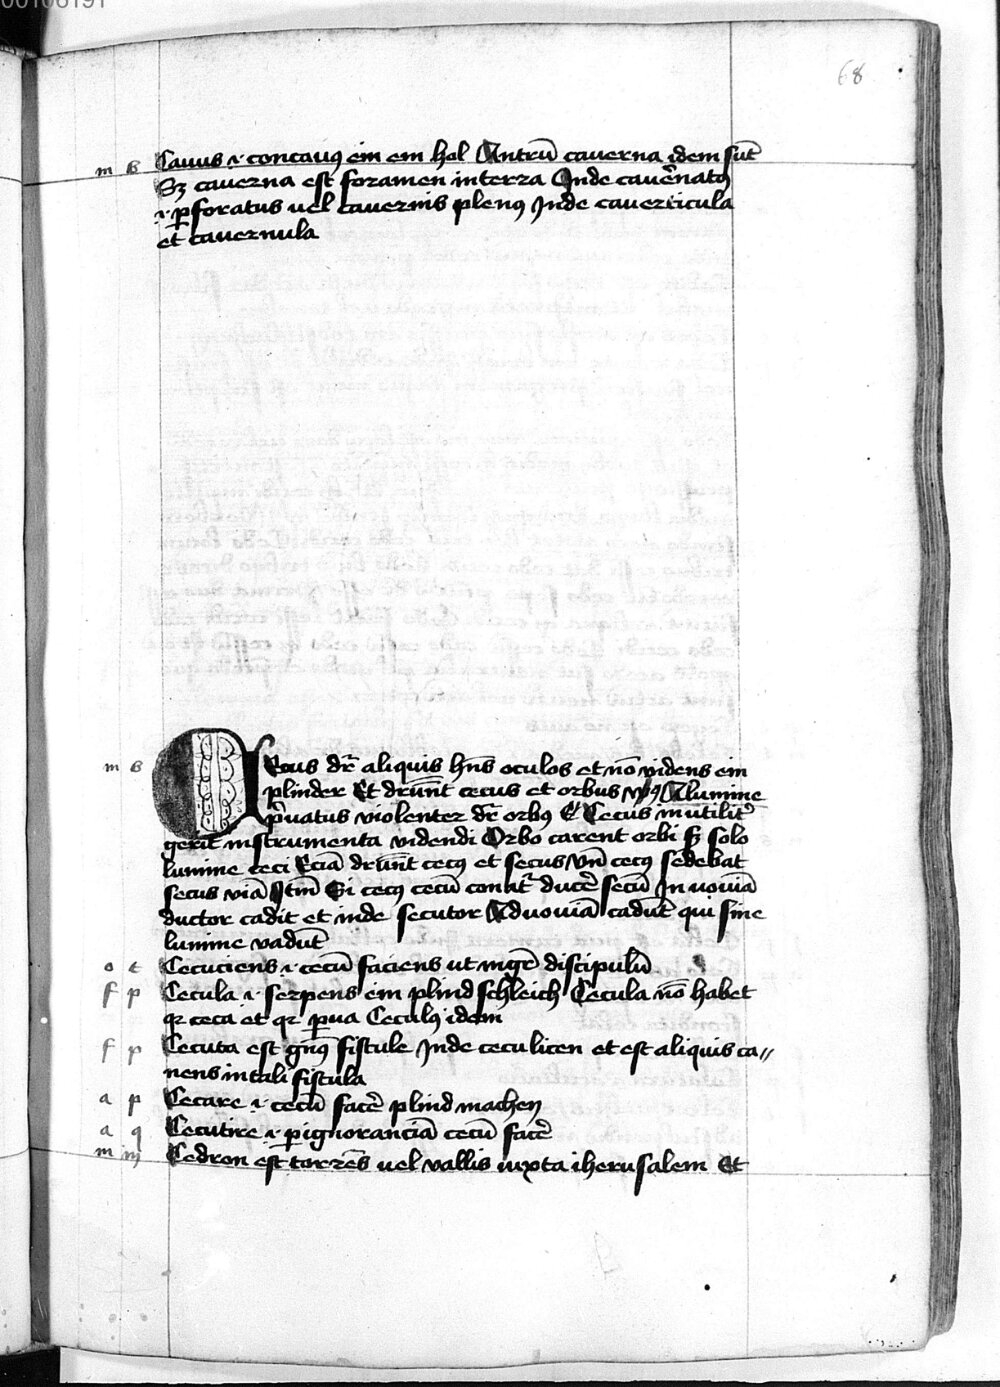 00106191
68
m b Cauus .i. concauꝰ ein ein hol Antrū cauerna idem sūt
Sꝫ cauerna est foramen in terra Vnde cauernatꝰ
.i. ꝑforatus uel cauernis plenꝰ Inde cauernicula
et cavernula
m b Cecus dr̄ aliquis hn̄s oculos et nō videns ein
plinder Et drūnt cecus et orbus A lumine
pͥuatus violenter dr̄ orbꝰ Et Cecus inutilit̄
gerit instrumenta videndi Orbo carent orbi sꝫ solo
lumine ceci Eciā drūnt cecꝰ et secus Vn̄ cecꝰ sedebat
secus viā Itm̄ Si cecꝰ cecū conat᷑ ducē secū In
ductor cadit et inde secutor cadūt qui sine
lumine vadūt
o t Cecuciens .i. cecū faciens ut mgr̄ discipulū
f p Cecula .i. serpens ein plind schleich Cecula nō habet
qr ceca et qr ꝑua Ceculꝰ idem
f p Cecuta est gn̄ꝰ fistule Inde ceculicen et est aliquis ca//
nens in tali fistula
a p Cecare .i. cecū facē plind machen
a q Cecutire .i. ꝑ ignoranciā cecū facē
m m Cedron est torrēs uel vallis iuxta iherusalem Et